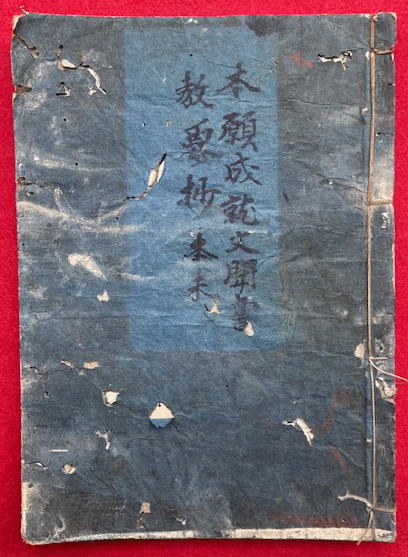 本願成就文聞書
教要抄 本末